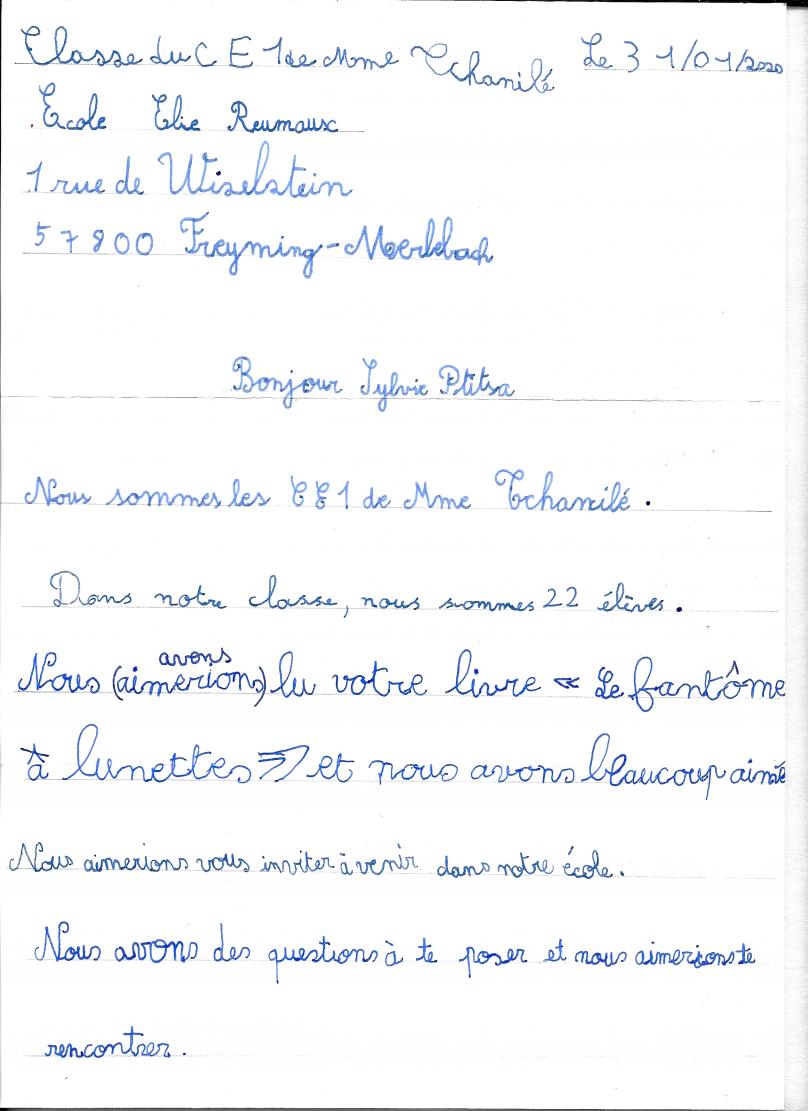 Classe du CE1 de Mme Tchanilé Le 31/01/2020
École Elie Reumaux
1 rue de Wiselstein
57800 Freyming-Merlebach
Bonjour Sylvie Ptitsa
Nous sommes les CE1 de Mme Tchanilé.
Dans notre classe, nous sommes 22 élèves.
avons
Nous (aimerions) lu votre livre « Le fantôme
à lunettes » et nous avons beaucoup aimé
Nous aimerions vous inviter à venir dans notre école.
Nous avons des questions à te poser et nous aimerions te
rencontrer.